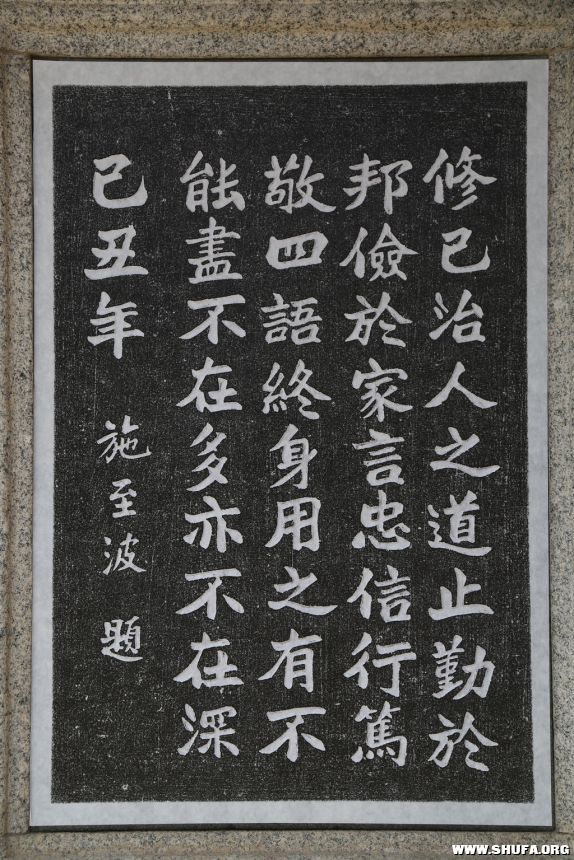 修己治人之道止勤於
邦儉於家言忠信行篤
敬四語終身用之有不
能盡不在多亦不在深
己丑年 施至波 題
WWW.SHUFA.ORG